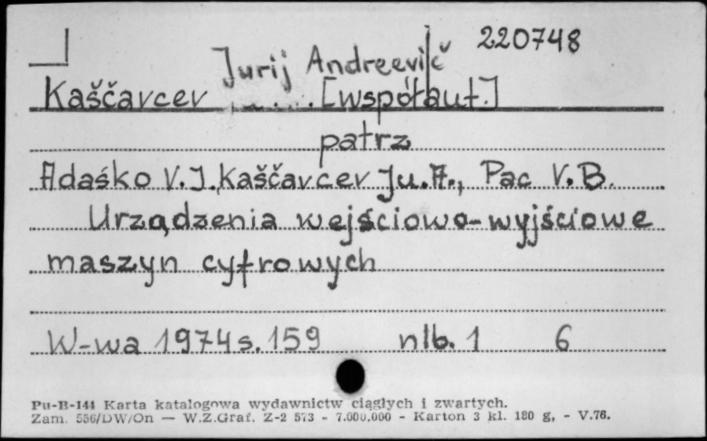 220748
Jurij Andreevič
Kaščavcev [współaut.]
patrz
Adaśko V.I. Kaščavcev Ju.A., Pac V.B.
Urządzenia wejściowo-wyjściowe
maszyn cyfrowych
W-wa 1974 s. 159 nlb. 1 6
Pu-B-144 Karta katalogowa wydawnictw ciągłych i zwartych.
Zam. 556/DW/On — W.Z.Graf. Z-2 573 - 7.000.000 - Karton 3 kl. 180 g, - V.76.